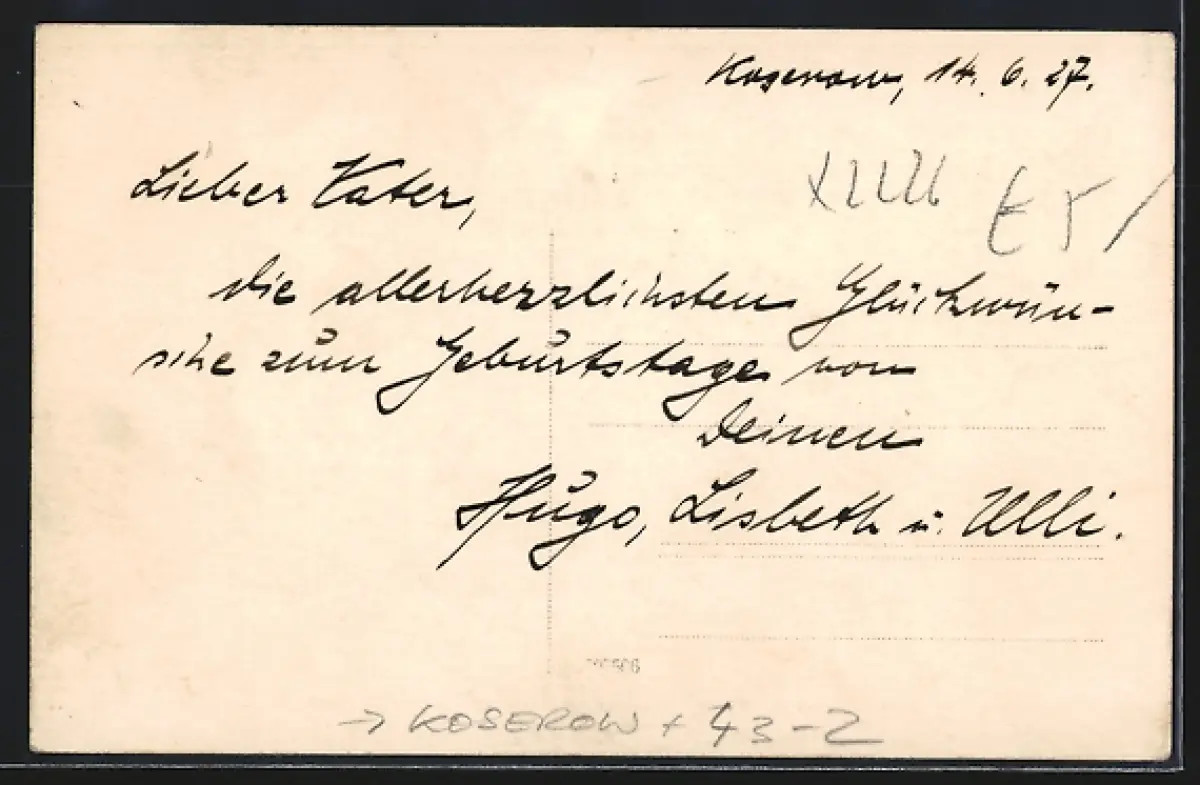 Koserow, 14. 6. 27.
Lieber Vater,
die allerherzlichsten Glückwün-
sche zum Geburtstage von
Deinen
Hugo, Lisbeth u. Ulli.
→ KOSEROW + 43-2